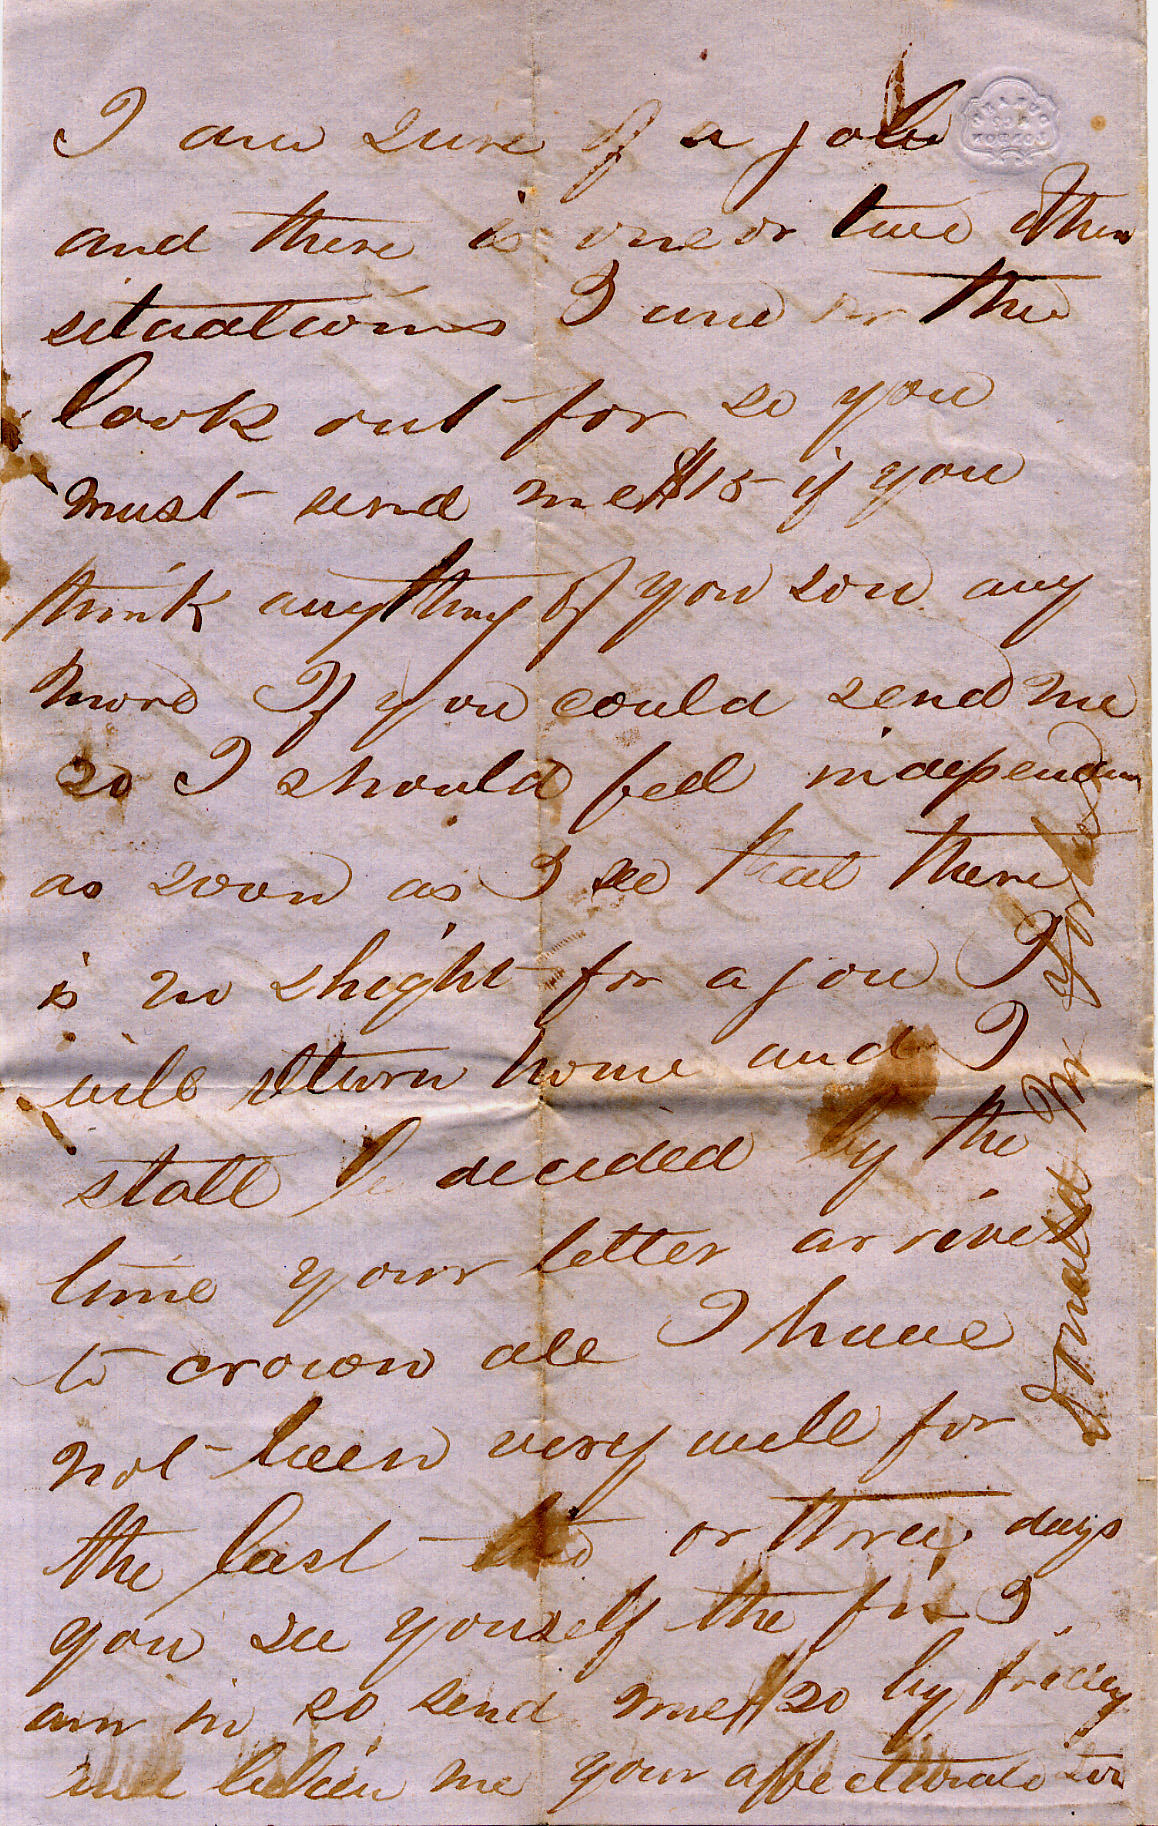 I am sure of a job
and there is one or two other
situations I am on the
look out for so you
must send me $15 if you
think anything of you son any
more If you could send me
20 I should feel independen
as soon as I see that there
is no shight for a jou I
will return home and I
shall be decided by the
time your letter arrives
to crown all I have
not been very well for
the last two or three days
you see yourself the fix I
am in so send me $20 by friday
and believe me your affectionate son
Donald M